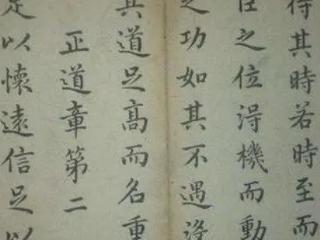 待其時若時至而
臣之位得機而動
之功如其不遇
其道足高而名重
正道章第二
足以懷遠信足以